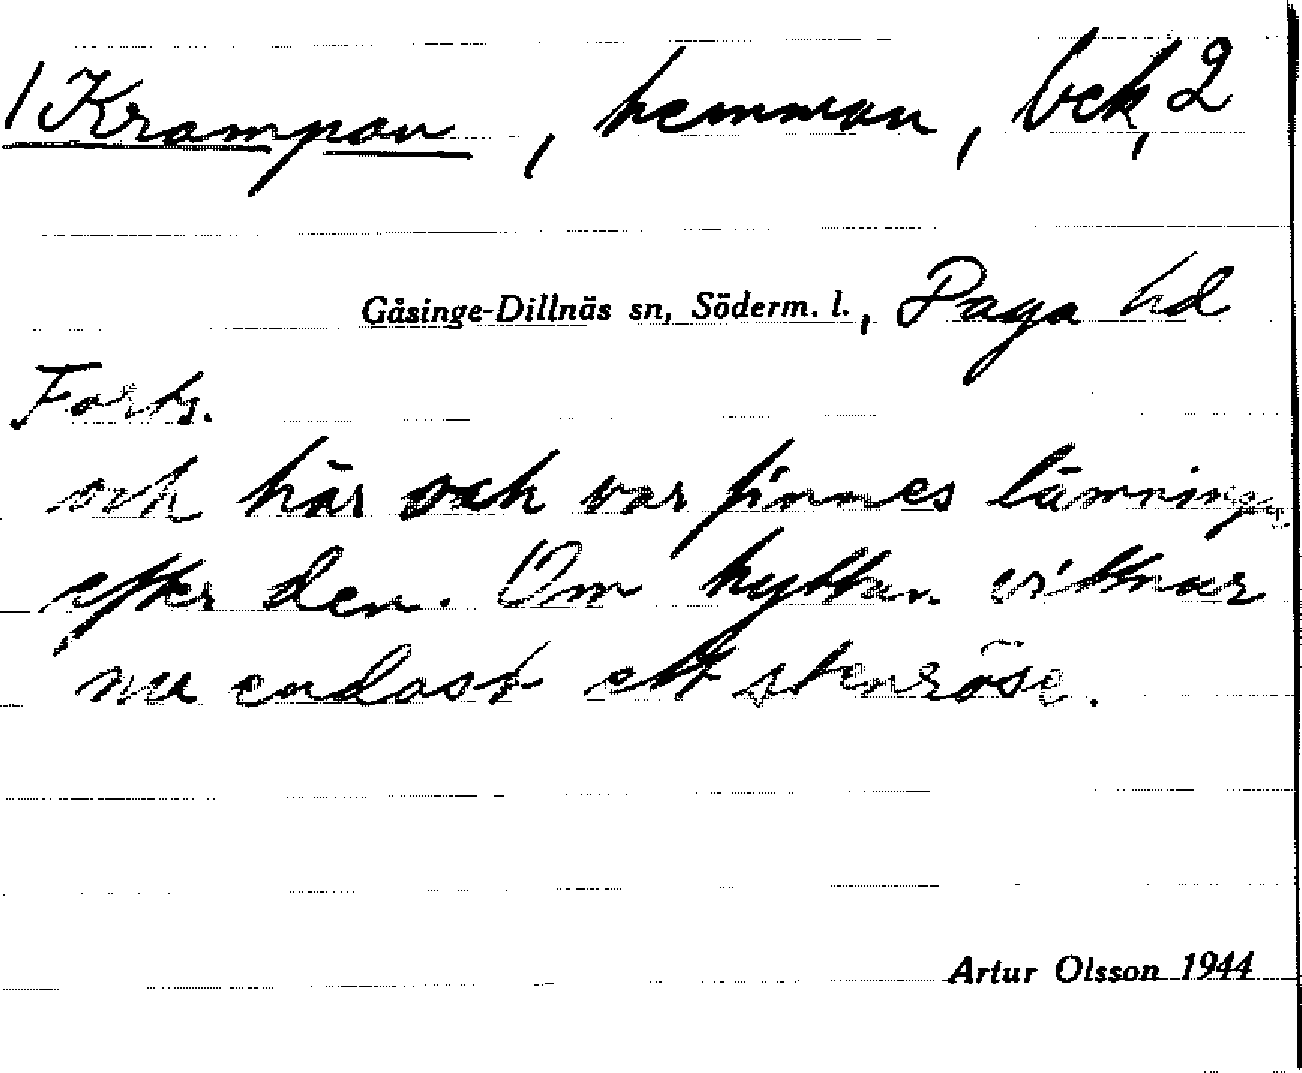 /Krampan, hemman, bek, 2
Gåsinge-Dillnäs sn, Söderm. l., Daga hd
Forts.
och här och var finnes lämningar
efter den. Om hyttan vittnar
nu endast ett stenröse.
Artur Olsson 1944